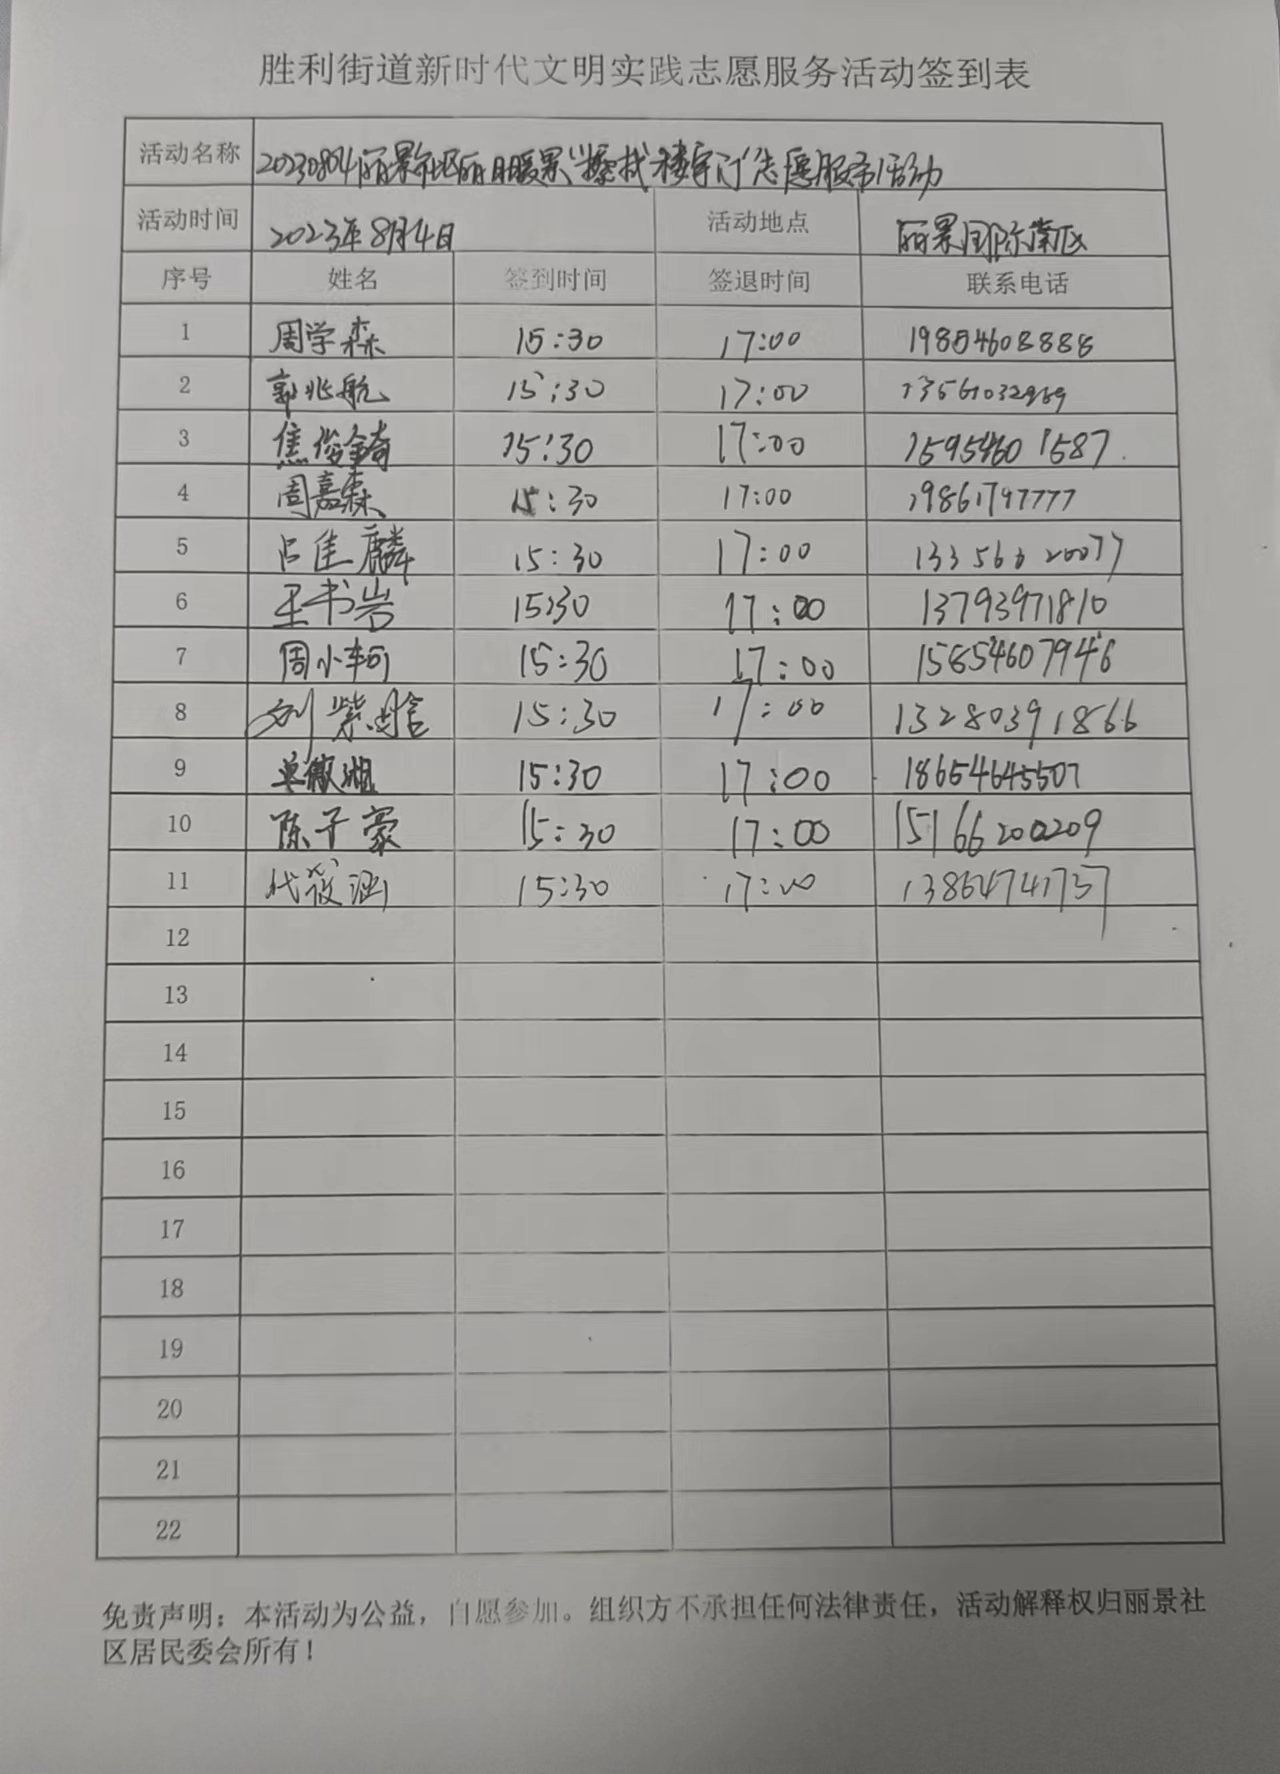 胜利街道新时代文明实践志愿服务活动签到表
活动名称 20230804丽景社区丽日暖景"擦拭楼宇门"志愿服务活动
活动时间 2023年8月4日 活动地点 丽景国际南区
序号 姓名 签到时间 签退时间 联系电话
1 周学森 15:30 17:00 19854608888
2 郭兆航 15:30 17:00 13561032989
3 焦俊錡 15:30 17:00 15954601587
4 周嘉森 15:30 17:00 19861797777
5 占佳麟 15:30 17:00
6 王书岩 15:30 17:00 13793971810
7 周小轲 15:30 17:00 15854607946
8 刘紫晗 15:30 17:00 13280391866
9 单微湘 15:30 17:00 18654645507
10 陈子豪 15:30 17:00 15166200209
11 代筱涵 15:30 17:00 13864741757
12
13
14
15
16
17
18
19
20
21
22
免责声明：本活动为公益，自愿参加。组织方不承担任何法律责任，活动解释权归丽景社
区居民委会所有！